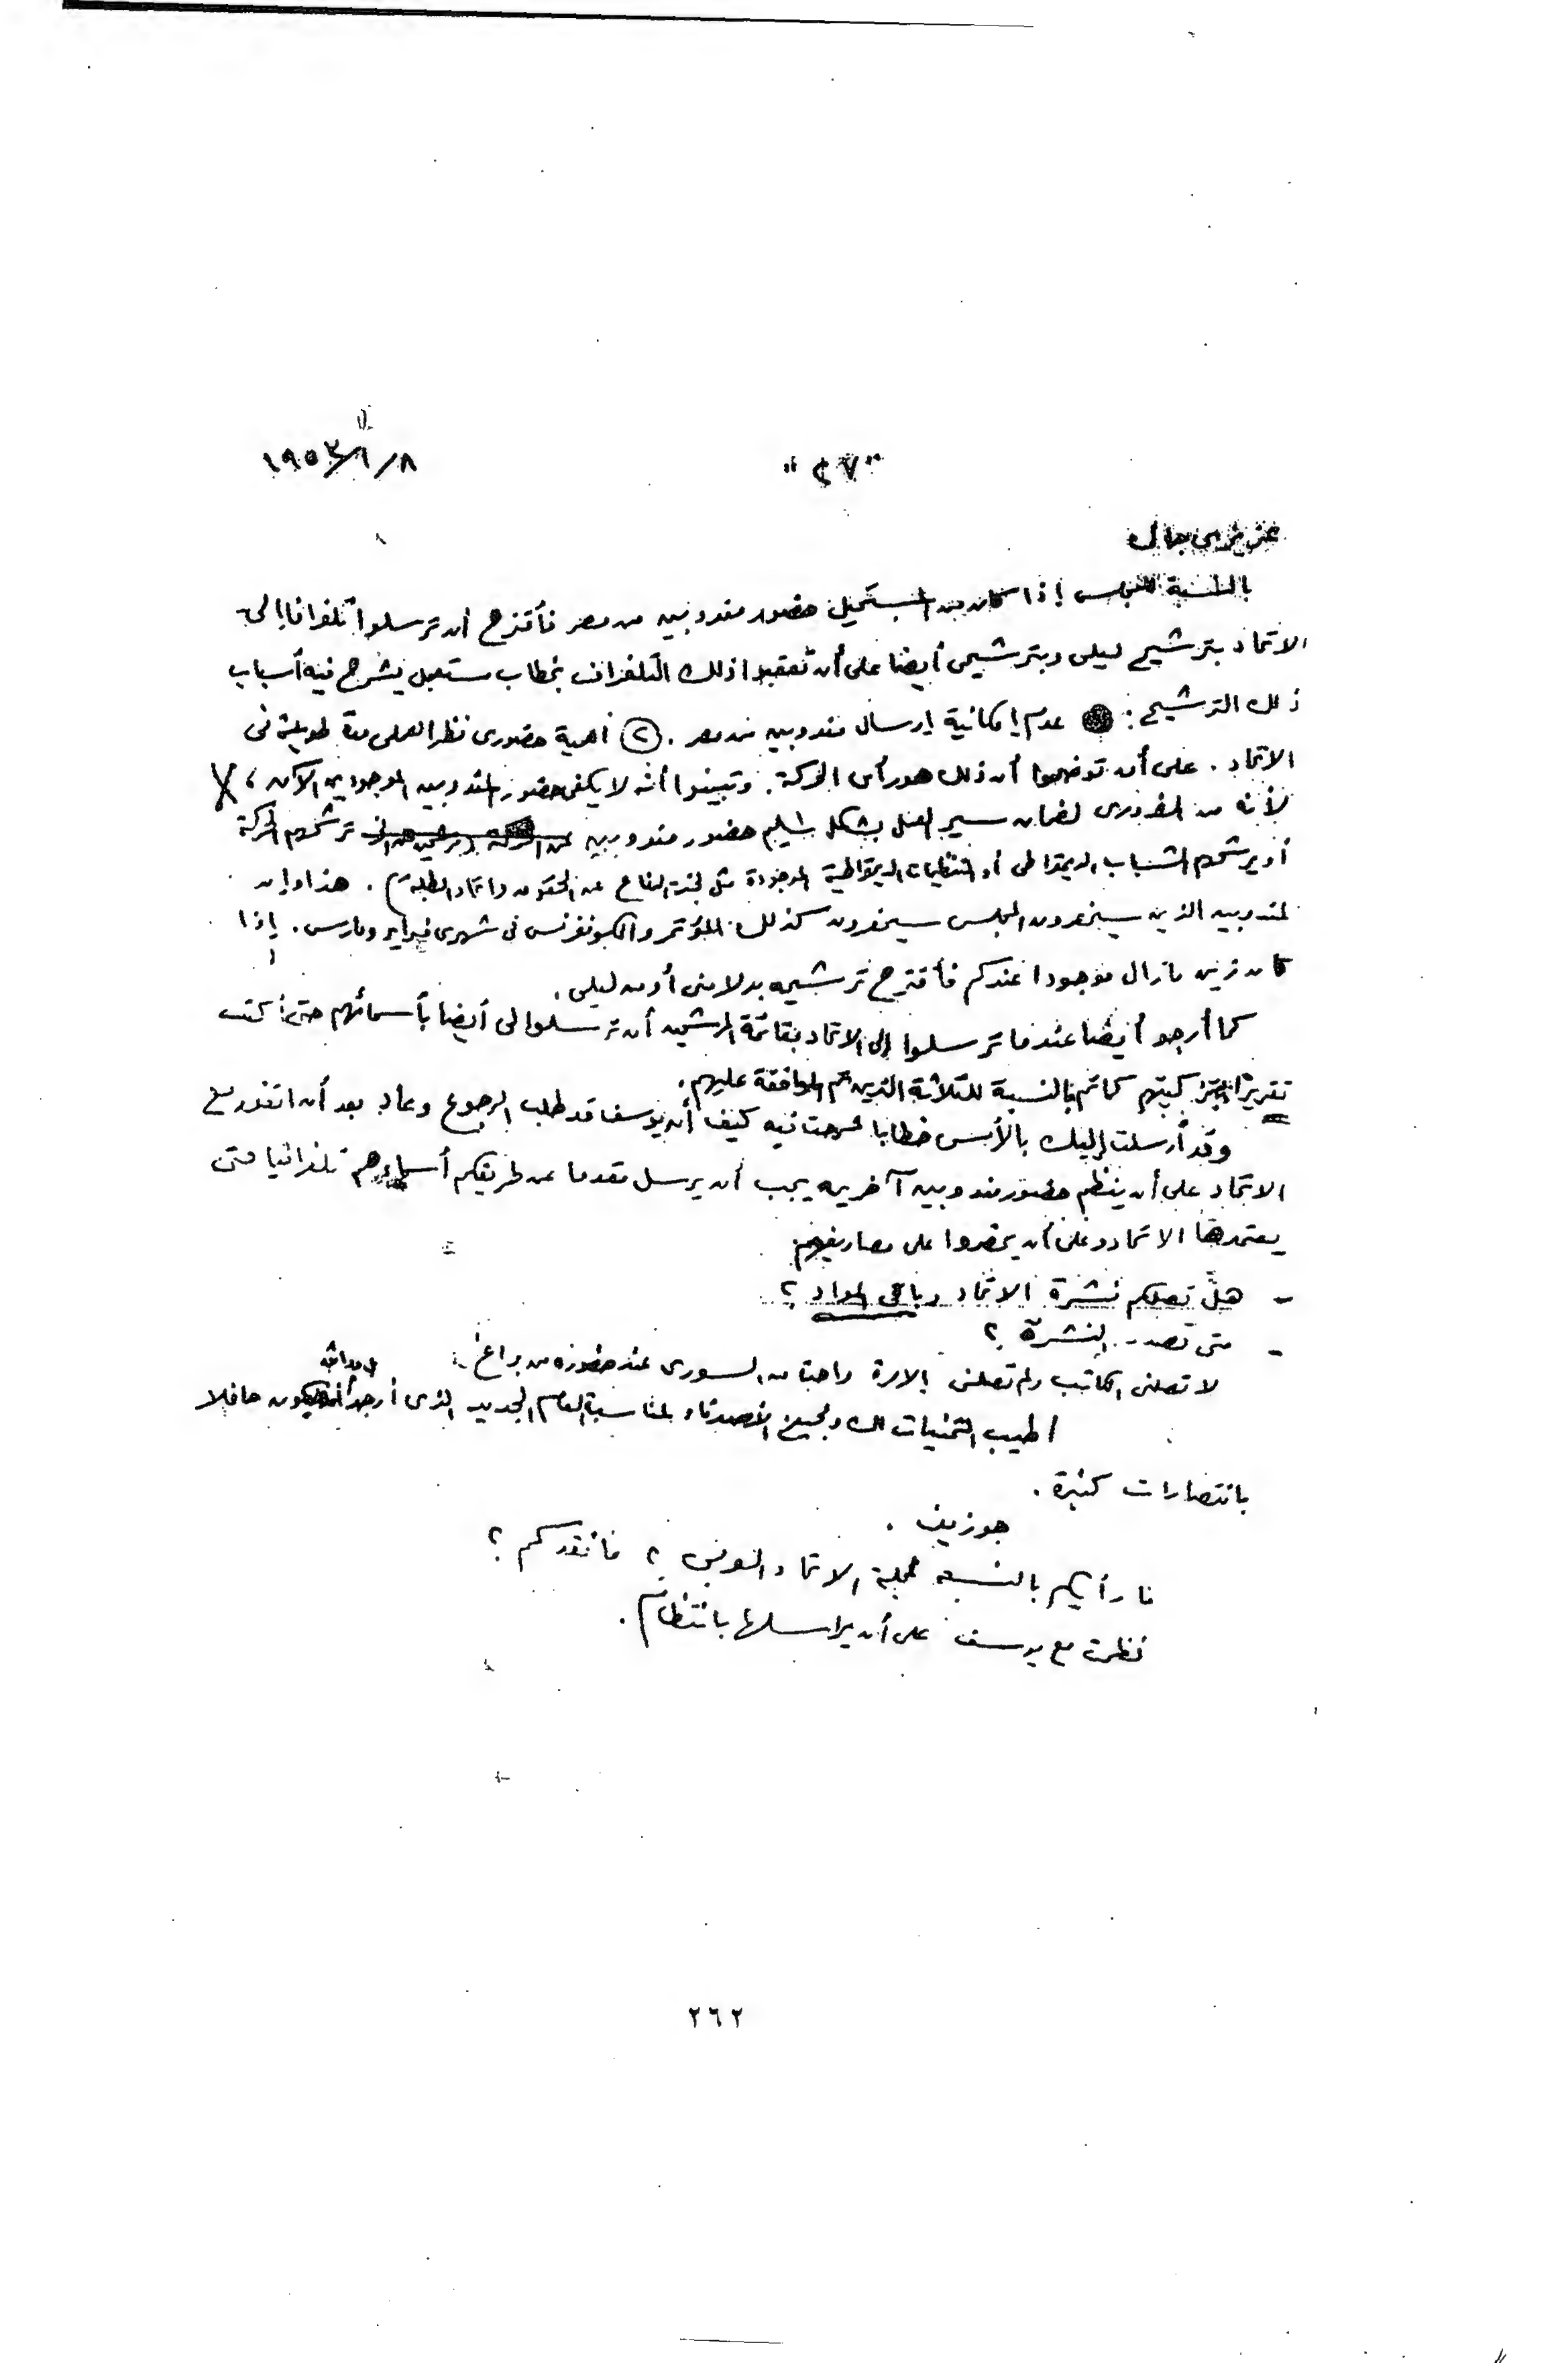 ١٩٥٣/١/٨
"٤٧"
عزيزى جاك
بالنسبة للمجلس إذا كان من المستحيل حضور مندوبين من مصر فأقترح أن ترسلوا تلغرافا إلى
الاتحاد بترشيح ليلى وبترشيحى أيضا على أن تعقبوا ذلك التلغراف بخطاب مستعجل يشرح فيه أسباب
ذلك الترشيح: عدم إمكانية إرسال مندوبين من مصر. ② أهمية حضورى نظرا لعملى مدة طويلة فى
الاتحاد. على أن توضحوا أن ذلك هو رأى الحركة. وتبينوا أنه لا يكفى حضور المندوبين الموجودين الآن،
لأنه من الضرورى لضمان سير العمل بشكل سليم حضور مندوبين ترشحهم الحركة
أو يرشحهم الشباب الديمقراطى أو التنظيمات الديمقراطية الموجودة مثل لجنة الدفاع عن الحقوق واتحاد الطلبة). هذا وإن
المندوبين الذين سيحضرون المجلس سيحضرون كذلك المؤتمر والكونفرنس فى شهرى فبراير ومارس. إذا
كان زين مازال موجودا عندكم فأقترح ترشيحه بدلا منى أو من ليلى.
كما أرجو أيضا عندما ترسلوا إلى الاتحاد بقائمة المرشحين أن ترسلوا لى أيضا بأسمائهم حتى أكتب
تقريرا بتزكيتهم كما تم بالنسبة للثلاثة الذين تم الموافقة عليهم.
وقد أرسلت إليك بالأمس خطابا شرحت فيه كيف أن يوسف قد طلب الرجوع وعاد بعد أن اتفق مع
الاتحاد على أن ينظم حضور مندوبين آخرين يجب أن يرسل مقدما عن طريقكم أسماءهم تلغرافيا حتى
يعتمدها الاتحاد وعلى أن يحضروا على مصاريفهم.
- هل تصلكم نشرة الاتحاد وباقى المواد؟
- متى تصدر النشرة؟
لا تصلنى الكاتب ولم تصلنى إلا مرة واحدة من السورى عند حضوره من براغ.
أطيب التمنيات لك ولجميع الأصدقاء بمناسبة العام الجديد الذى أرجو أن يكون حافلا
بانتصارات كثيرة.
جوزيف.
ما رأيكم بالنسبة لمجلة الاتحاد العربى؟ ما نقدكم؟
نظمت مع يوسف على أن يراسلها بانتظام.
٢٦٢